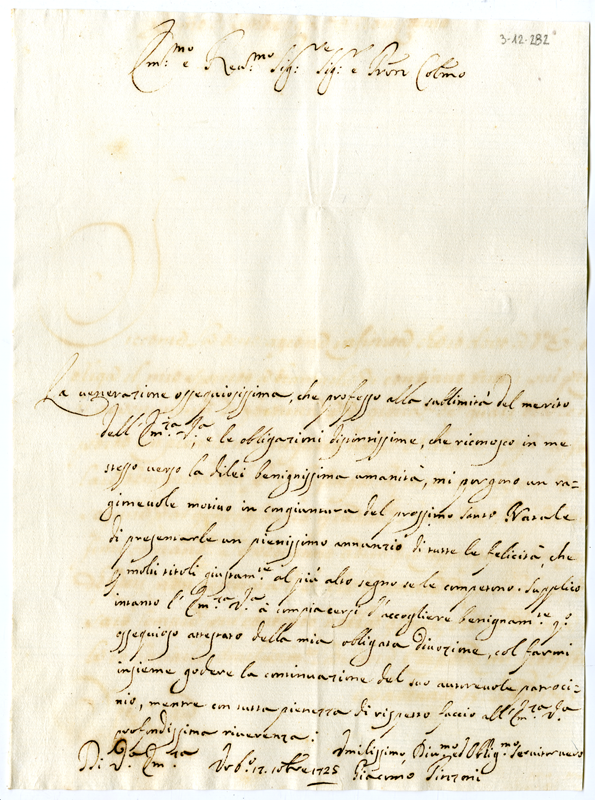 3-12-282
Em:mo e Rev:mo Sig:re Sig:r e Pron Colmo
La venerazione ossequiosissima, che professo alla sublimità del merito
dell'Em:za V:a, e le obligazioni distintissime, che riconosco in me
stesso verso la dilei benignissima umanità, mi porgono un ra=
gionevole motivo in congiuntura del prossimo Santo Natale
di presentarle un pienissimo annunzio di tutte le felicità, che
p molti titoli giustam:te al più alto segno se le competono. Supplico
intanto l'Em:za V:a à compiacersi d'accogliere benignam:te q:o
ossequioso attestato della mia obligata divozione, col farmi
insieme godere la continuazione del suo autorevole patroci=
nio, mentre con tutta pienezza di rispetto faccio all'Em:za V:a
profondissima riverenza.
Di V:a Em:za Urb:o 12. xbre 1725 Umilissimo, Div:mo et Oblig:mo Servitor vero
Giacomo